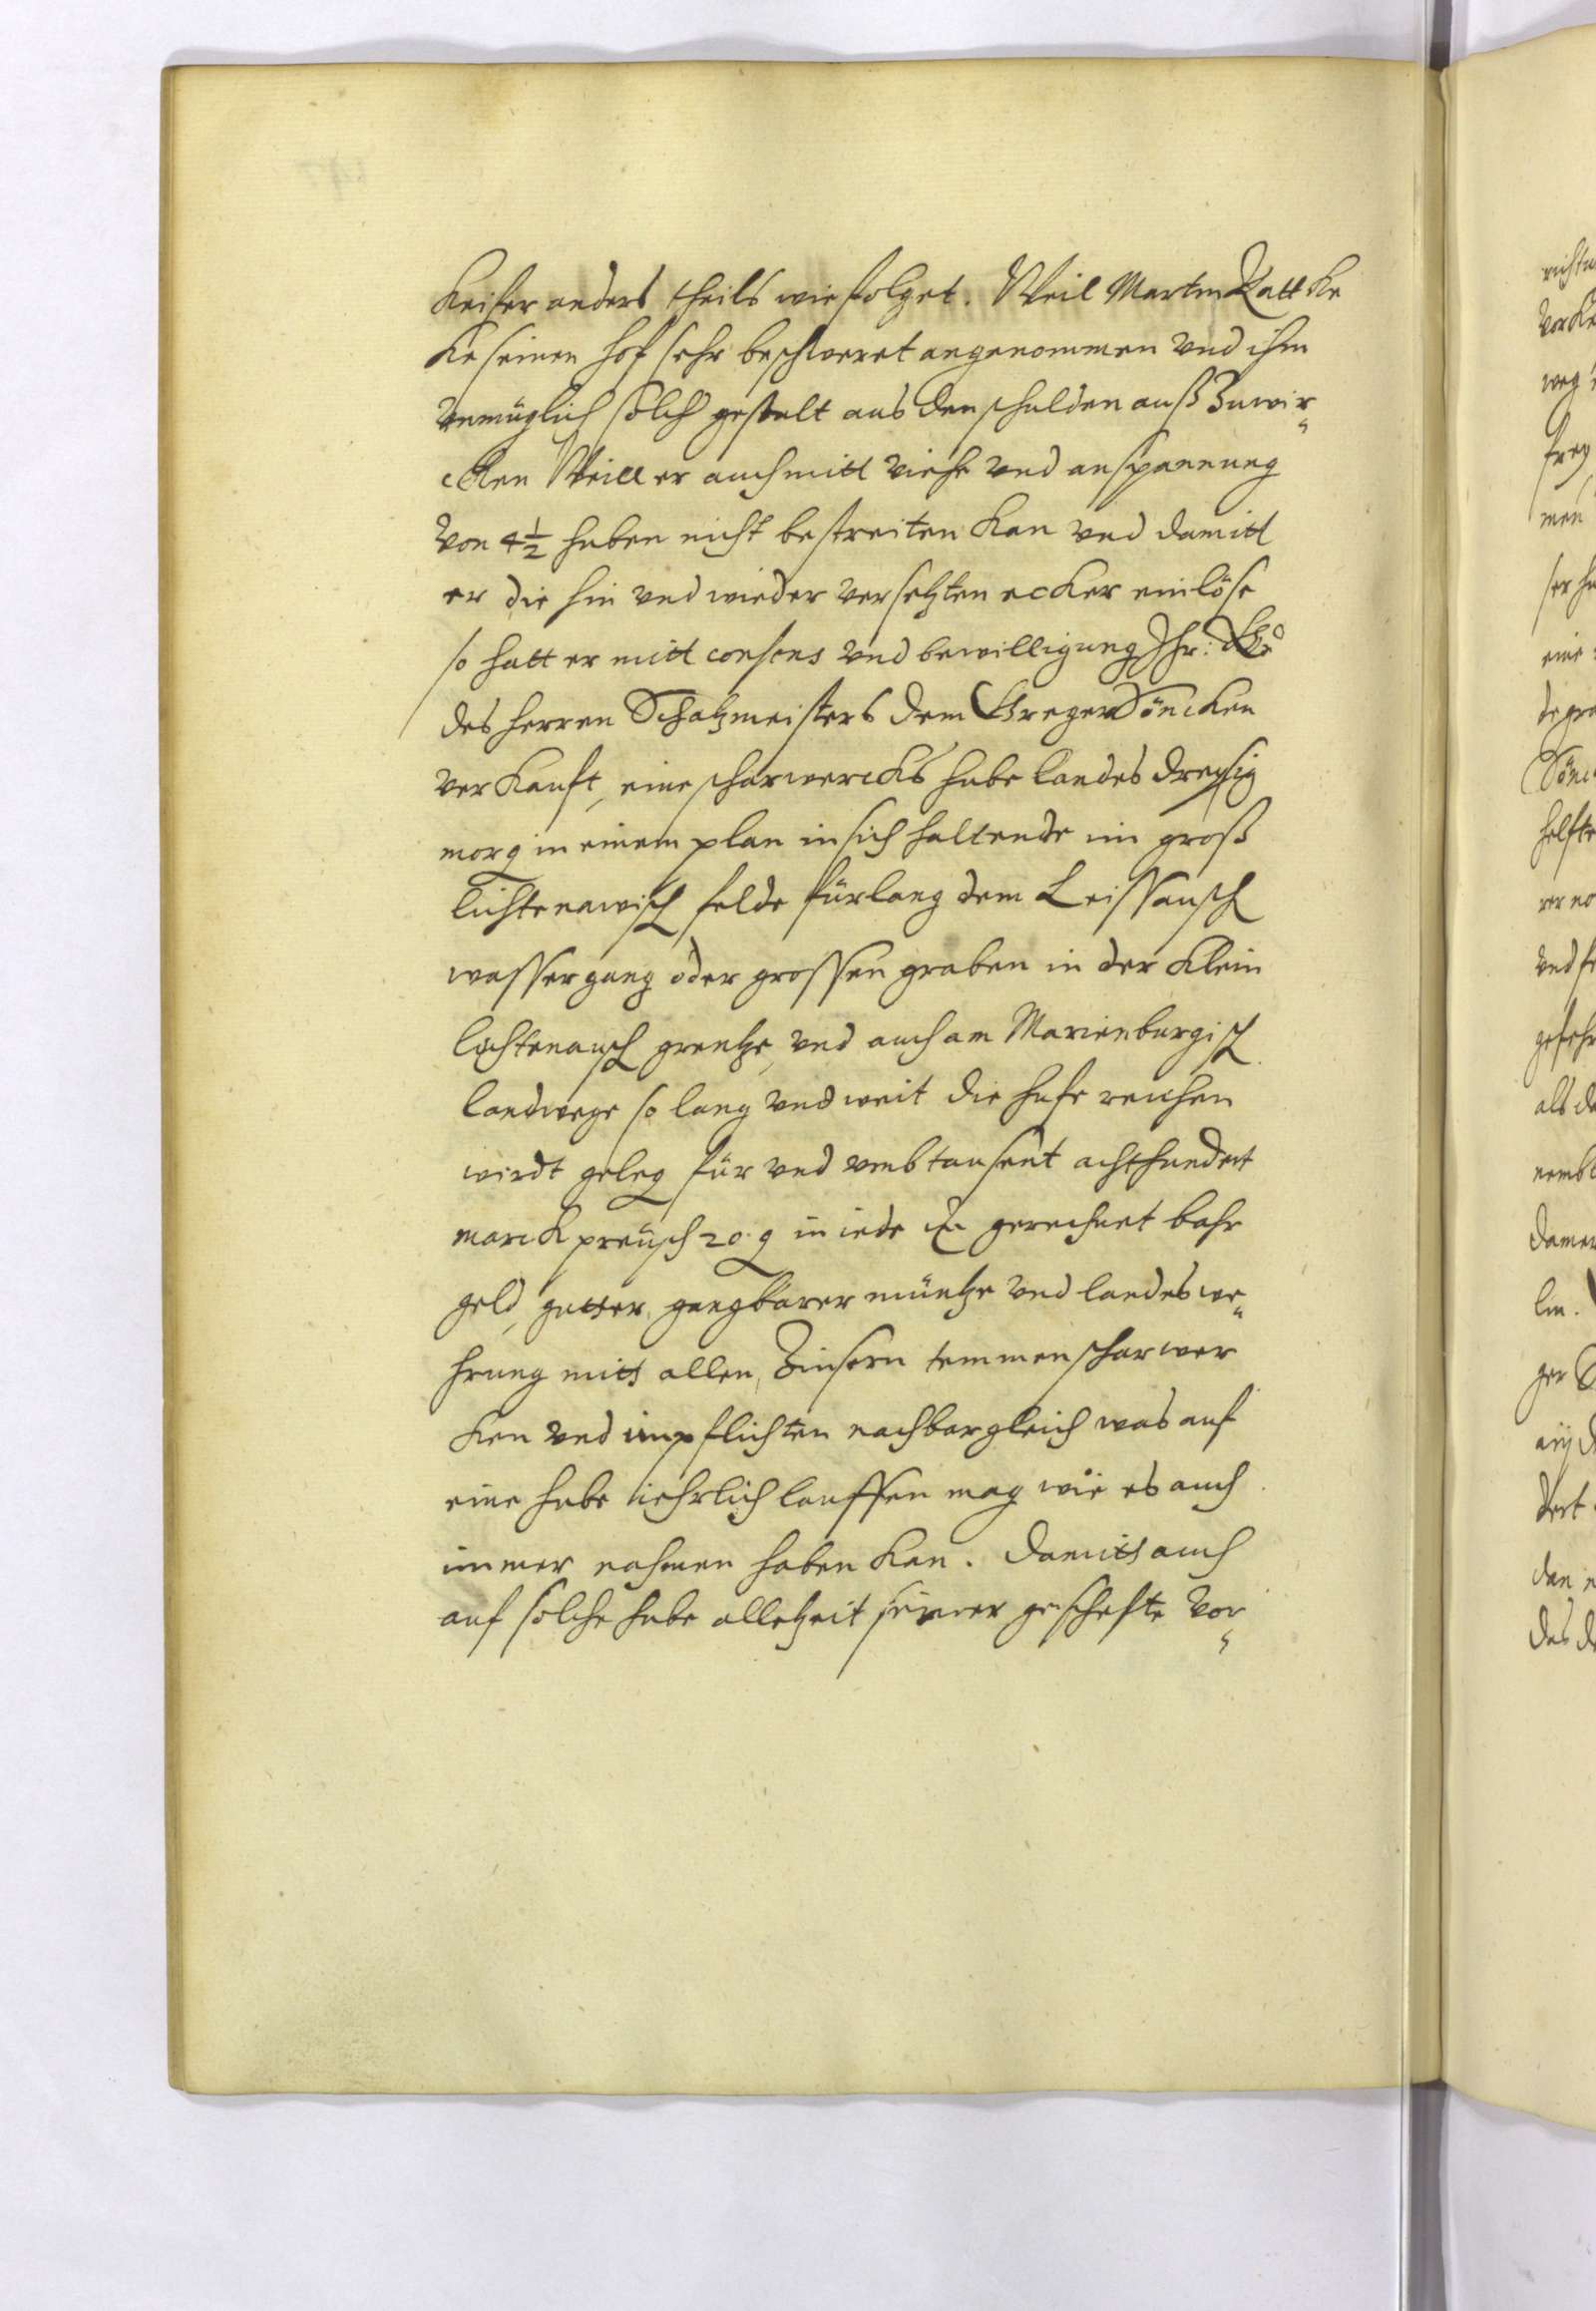 Keiser anders theils wie folget. Weil Martin Rattke
Ke seinen hof sehr beschweret angenommen vnd ihm
vnmüglich solch gestalt aus den schulden auß Zuwir„
cken Weill er auch mitt viehe vnd anspannung
von 4½ huben nicht bestreiten kan vnd damitt
er die hin vnd wieder versetzten ecker einlöse
so hatt er mitt consens vnd bewilligung Ihr: Gn
des herren Schatzmeisters dem Greger Töncken
verkauft, eine scharwercks hube landes dreysig
morg in einem plan in sich haltende im groß
lichtenawisch felde fürlang dem Leissausch
wassergang oder grossen graben in der Klein
lichtenausch grentze, vnd auch am Marienburgisch
landwege so lang vnd weit die hufe reichen
wirdt geleg für vnd vmb tausent achthundert
marck preüsch 20 g in iede gerechnet bahr
geld, gutter, gangbarer müntze vnd landes we„
hrung mitt allen, Zinsern temmen scharwer
ken vnd vnpflichten nachbargleich was auf
eine hube iehrlich lauffen mag wie es auch
immer nahmen haben kan. Damitt auch
auf solche hube alletzeit seiner geschefte vor„